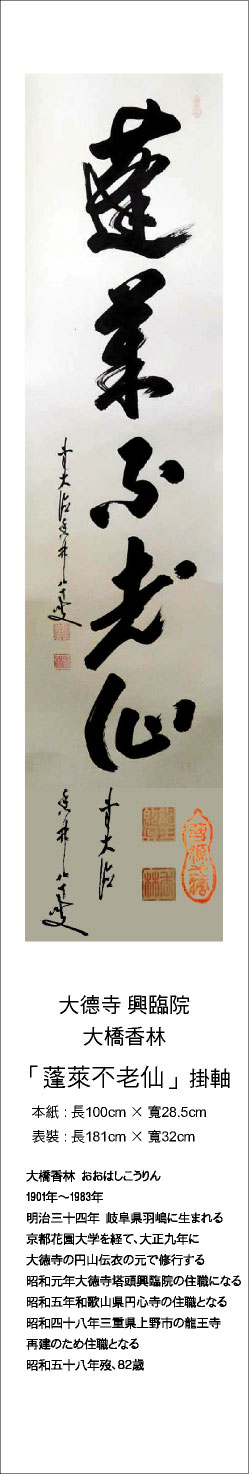 蓬萊不老仙
大德寺 興臨院
大橋香林
「蓬萊不老仙」掛軸
本紙 : 長100cm × 寬28.5cm
表裝 : 長181cm × 寬32cm
大橋香林 おおはしこうりん
1901年～1983年
明治三十四年 岐阜県羽嶋に生まれる
京都花園大学を経て、大正九年に
大徳寺の円山伝衣の元で修行する
昭和元年大徳寺塔頭興臨院の住職になる
昭和五年和歌山県円心寺の住職となる
昭和四十八年三重県上野市の龍王寺
再建のため住職となる
昭和五十八年歿、82歳